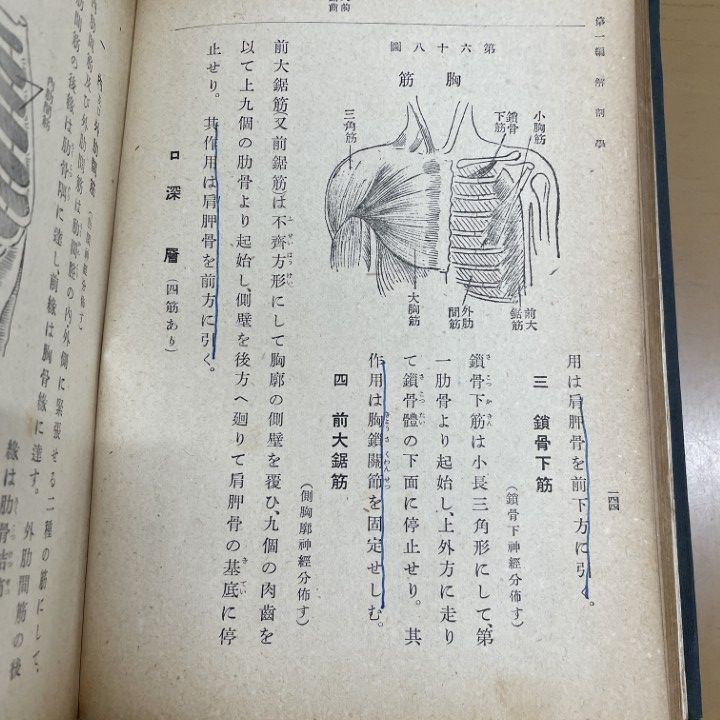 第一編 解剖學
一四四
用は肩胛骨を前下方に引く。
三 鎖骨下筋
(鎖骨下神經分佈す)
鎖骨下筋は小長三角形にして、第
一肋骨より起始し、上外方に走り
て鎖骨體の下面に停止せり。其
作用は胸鎖關節を固定せしむ。
第六十八圖
胸筋
小胸筋
鎖骨下筋
三角筋
前大鋸筋
外肋間筋
大胸筋
四 前大鋸筋
(側胸廓神經分佈す)
前大鋸筋(又前鋸筋)は不齊方形にして胸廓の側壁を覆ひ、九個の肉齒を
以て上九個の肋骨より起始し、側壁を後方へ廻りて肩胛骨の基底に停
止せり。其作用は肩胛骨を前方に引く。
ロ 深層 (四筋あり)
外肋間筋は肋間腔の内・外側に緊張せる二種の筋にして、
外肋間筋の後
筋の後緣は肋骨隅に達し、前緣は胸骨緣に達す。